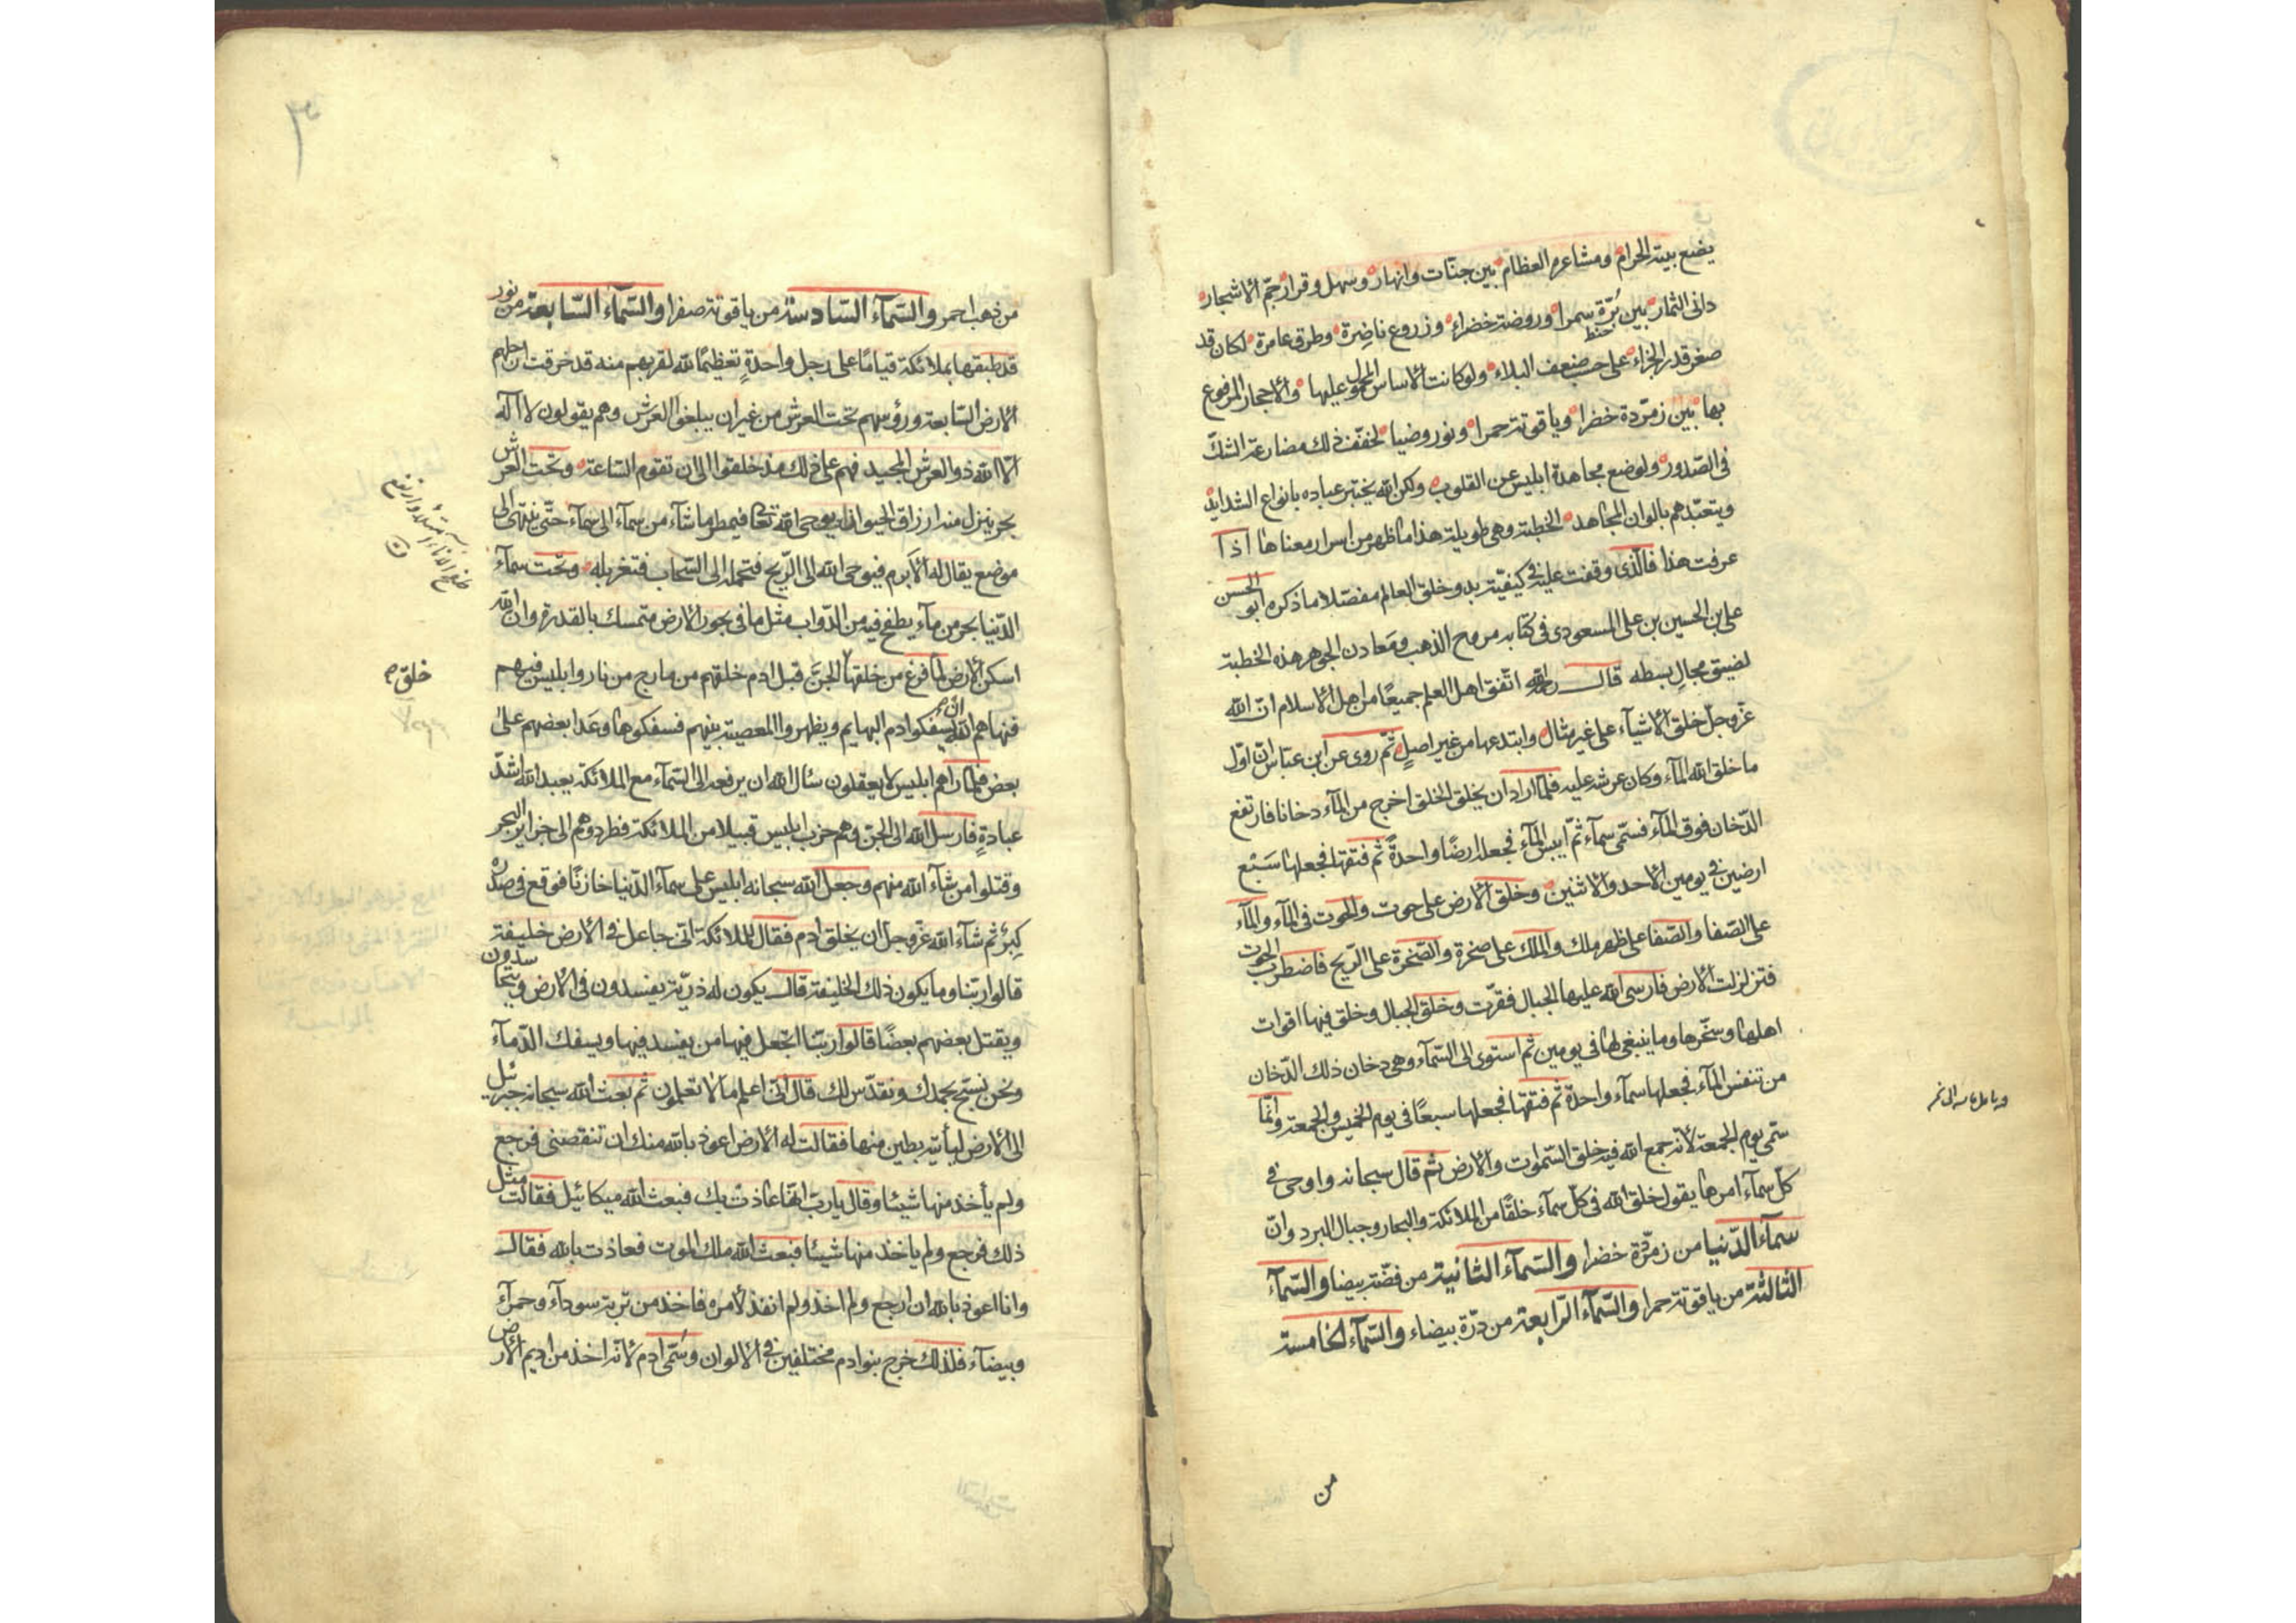 يضع بيته الحرام ومشاعره العظام بين جنّات وانهار وسهل وقرار جمّ الاشجار
دانى الثمار بين بُرّة سمرا وروضة خضراء وزروع ناضِرة وطرق عامرة لكان قد
حنطه
صغر قدر الجزاء على حسب ضعف البلاء ولو كانت الاساس المحمول عليها والاحجار المرفوع
بها بين زمرّدة خضرا وياقوتة حمرا ونور وضيا لخفّف ذلك مضارعة الشكّ
فى الصّدور ولوضع مجاهدة ابليس عن القلوب ولكن الله يختبر عباده بانواع الشدايد
ويتعبّدهم بالوان المجاهد الخطبة وهى طويلة هذا ما ظهر من اسرار معناها اذا
عرفت هذا فالّذى وقفت عليه فى كيفيّة بدو خلق العالم مفصّلا ما ذكره ابو الحسن
على بن الحسين بن على المسعودى فى كتابه مروج الذهب ومَعادن الجوهر هذه الخطبة
لضيق مجال بسطه قال رحمه الله اتّفق اهل العلم جميعًا من اهل الاسلام انّ الله
عزّ وجلّ خلق الاشيآء على غير مثال وابتدعها من غير اصل ثمّ روى عن ابن عبّاس انّ اوّل
ما خلق الله المآء وكان عرشه عليه فلمّا اراد ان يخلق الخلق اخرج من المآء دخانا فارتفع
الدّخان فوق المآء فسمّى سمآء ثمّ ايبس المآء فجعله ارضًا واحدةً ثم فتقها فجعلها سَبْع
ارضين فى يومين الاحد والاثنين وخلق الارض على حوت والحوت فى المآء والمآء
على الصّفا والصّفا على ظهر ملك والملك على صخرة والصّخرة على الرّيح فاضطرب الحوت
فتزلزلت الارض فارسى الله عليها الجبال فقرّت وخلق الجبال وخلق فيها اقوات
اهلها وسخّرها وما ينبغى لها فى يومين ثم استوى الى السّمآء وهى دخان ذلك الدّخان
من تنفس المآء فجعلها سمآء واحدة ثم فتقها فجعلها سبعًا فى يوم الخميس والجمعة وانّما
سمّى يوم الجمعة لانّه جمع الله فيه خلق السّموات والارض ثم قال سبحانه واوحى فى
كلّ سمآء امرها يقول خلق الله فى كلّ سمآء خلقًا من الملائكة والبحار وجبال البرد وانّ
سمآء الدّنيا من زمرّدة خضرا والسّمآء الثانية من فضّة بيضا والسّمآء
الثالثة من ياقوتة حمرا والسّمآء الرّابعة من درّة بيضاء والسّمآء الخامسة
من
٣
من ذهب احمر والسّمآء السّادسة من ياقوتة صفرا والسّمآء السّابعة من نور
قد طبقها بملائكة قيامًا على رجل واحدةٍ تعظيمًا لله لقربهم منه قد خرقت ارجلهم
الارض السّابعة ورؤسهم تحت العرش من غير ان يبلغوا العَرش وهم يقولون لا اله
الّا الله ذو العرش المجيد فهم على ذلك منذ خلقوا الى ان تقوم السّاعة وتحت العرش
بحر ينزل منه ارزاق الحيوان يوحى الله تعا فيمطر ما شآء من سمآء الى سمآء حتّى ينتهى الى
موضع يقال له الابرم فيوحى الله الى الرّيح فتحمله الى السّحاب فتغربله وتحت سمآء
الدّنيا بحر من مآء يطفح فيه من الدّواب مثل ما فى بحور الارض متمسك بالقدرة وان الله
اسكن الارض لمّا فرغ من خلقها الجنّ قبل ادم خلقهم من مارج من نار وابليس فيهم
خلق
فنهاهم الله ان يسفكوا دم البهايم ويظهروا المعصية بينهم فسفكوها وعَدا بعضهم على
بعض فلمّا راهم ابليس لا يعقلون سأل الله ان يرفعه الى السّمآء مع الملائكة يعبد الله اشدّ
عبادةٍ فارسل الله الى الجنّ وهم حزب ابليس قبيلا من الملائكة فطردوهم الى جزاير البحر
وقتلوا من شآء الله منهم وجعل الله سبحانه ابليس على سمآء الدّنيا خازنًا فوقع فى صدره
كِبرٌ ثم شآء الله عزّ وجلّ ان يخلق ادم فقال للملائكة انّى جاعل فى الارض خليفة
قالوا ربّنا وما يكون ذلك الخليفة قال يكون له ذريّة يفسدون فى الارض ويتحاسدون
ويقتل بعضهم بعضًا قالوا ربّنا اتجعل فيها من يفسد فيها ويسفك الدّمآء
ونحن نسبّح بحمدك ونقدّس لك قال انّى اعلم ما لا تعلمون ثم بعث الله سبحانه جبرئيل
الى الارض ليأتيه بطين منها فقالت له الارض اعوذ بالله منك ان تنقصنى فرجع
ولم يأخذ منها شيئا وقال يا ربّ انّها عاذت بك فبعث الله ميكائيل فقالت مثل
ذلك فرجع ولم ياخذ منها شيئا فبعث الله ملك الموت فعاذت بالله فقال
وانا اعوذ بالله ان ارجع ولم اخذ ولم انفذ لأمره فاخذ من تربة سودآء وحمرآء
وبيضآء فلذلك خرج بنوا دم مختلفين فى الالوان وسُمّى ادم لانّه اخذ من اديم الارض